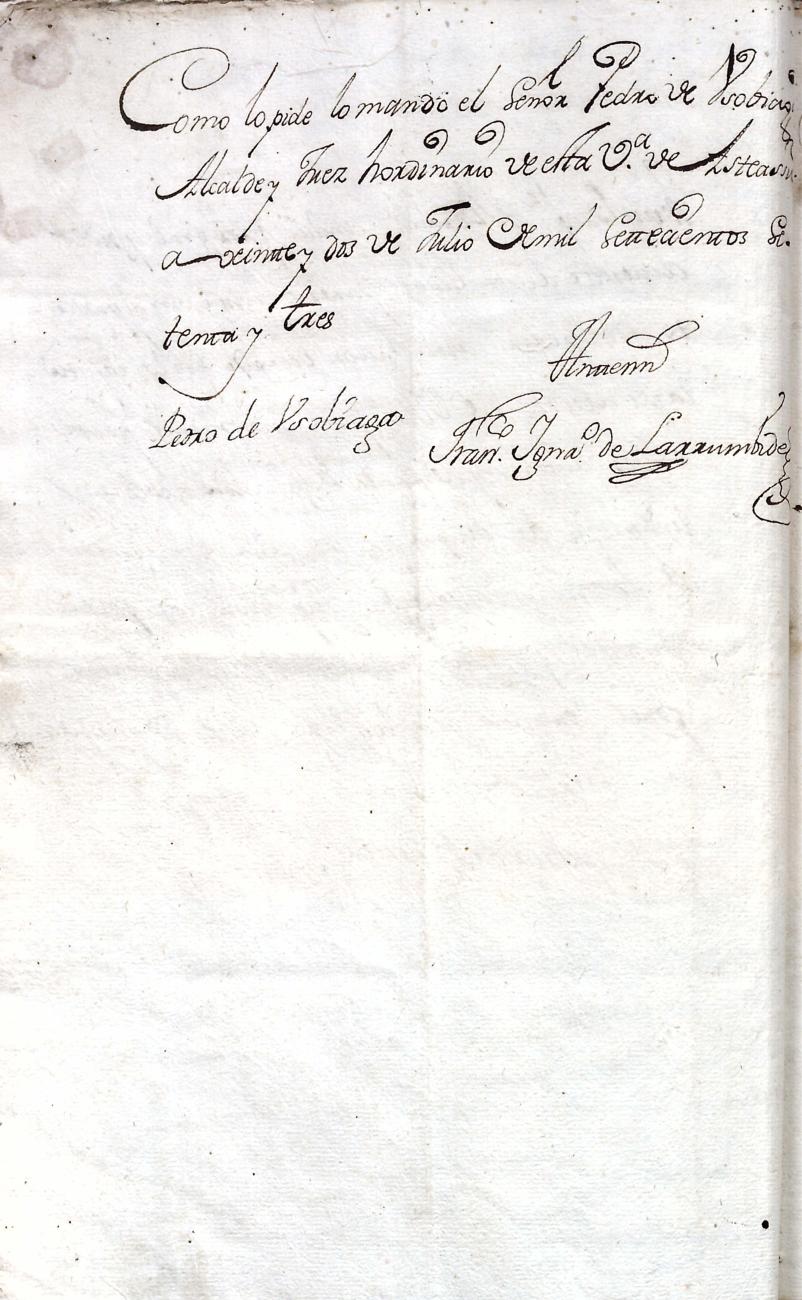 Como lo pide lo mando el Señor Pedro de Vsobiaga
Alcalde y Juez hordinario de esta V.ª de Asteasu
a veinte y dos de Julio de mil Setecientos Se-
tenta y tres
Pedro de Vsobiaga
Fran.co Ygna.o de Larrumbide